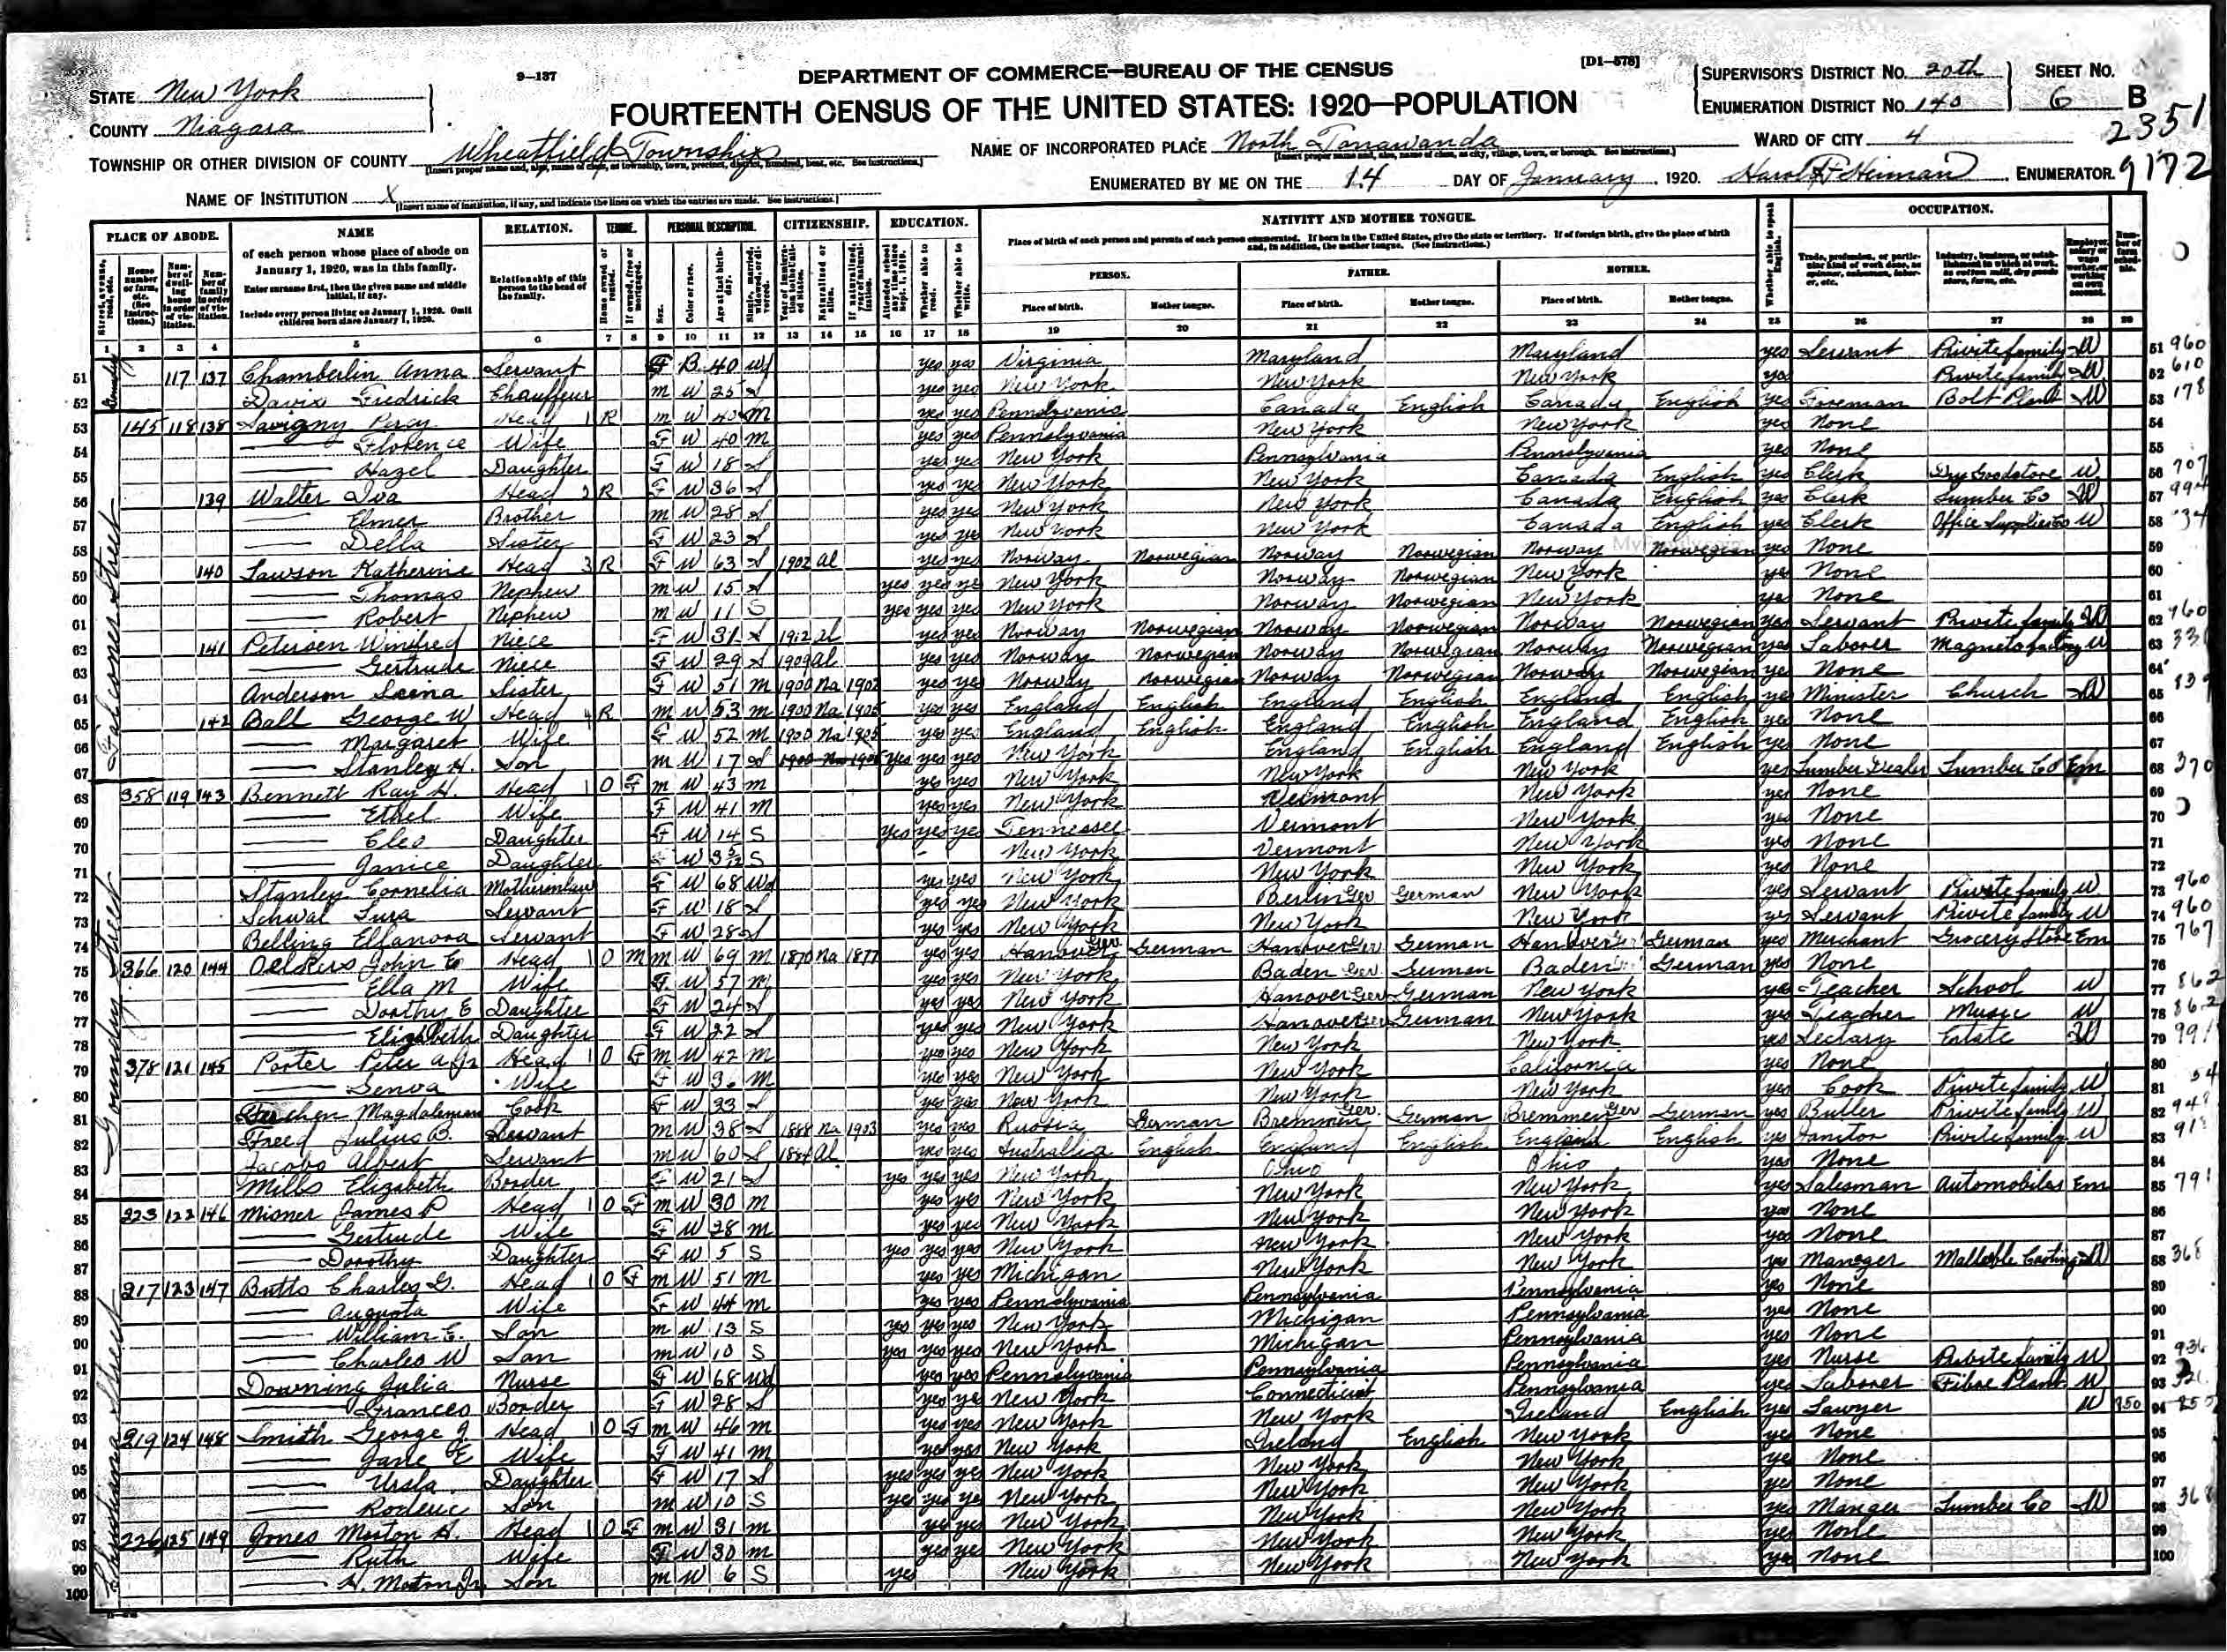 9—137
DEPARTMENT OF COMMERCE—BUREAU OF THE CENSUS
[D1-578]
FOURTEENTH CENSUS OF THE UNITED STATES: 1920—POPULATION
STATE New York
COUNTY Niagara
TOWNSHIP OR OTHER DIVISION OF COUNTY Wheatfield Township
NAME OF INSTITUTION X
NAME OF INCORPORATED PLACE North Tonawanda
ENUMERATED BY ME ON THE 14 DAY OF January, 1920. Harold F Heiman ENUMERATOR.
SUPERVISOR'S DISTRICT No. 20th
ENUMERATION DISTRICT No. 140
SHEET No. 6 B
WARD OF CITY 4
2351
9172
PLACE OF ABODE. NAME RELATION. TENURE. PERSONAL DESCRIPTION. CITIZENSHIP. EDUCATION. NATIVITY AND MOTHER TONGUE. OCCUPATION.
of each person whose place of abode on January 1, 1920, was in this family.
Enter surname first, then the given name and middle initial, if any.
Include every person living on January 1, 1920. Omit children born since January 1, 1920.
Relationship of this person to the head of the family.
Place of birth of each person and parents of each person enumerated. If born in the United States, give the state or territory. If of foreign birth, give the place of birth and, in addition, the mother tongue. (See instructions.)
PERSON. FATHER. MOTHER.
Place of birth. Mother tongue. Place of birth. Mother tongue. Place of birth. Mother tongue.
1 2 3 4 5 6 7 8 9 10 11 12 13 14 15 16 17 18 19 20 21 22 23 24 25 26 27 28 29
51 117 137 Chamberlin Anna Servant F B 40 Wd yes yes Virginia Maryland Maryland yes Servant Private family W 51 960
52 Davis Fredrick Chauffeur m W 25 S yes yes New York New York New York yes Private family W 52 610
53 145 118 138 Savigny Percy Head 1 R m W m yes yes Pennsylvania Canada English Canada English yes Foreman Bolt Plant W 53 178
54 Florence Wife F W 40 m yes yes Pennsylvania New York New York yes None 54
55 Hazel Daughter F W 18 S yes yes New York Pennsylvania Pennsylvania yes None 55
56 139 Walter Iva Head 2 R F W 36 S yes yes New York New York Canada English yes Clerk Dry Goodstore W 56 707
57 Elmer Brother m W 28 S yes yes New York New York Canada English yes Clerk Lumber Co W 57
58 Della Sister F W 23 S yes yes New York New York Canada English yes Clerk Office Supplies Co W 58
59 140 Lawson Katherine Head 3 R F W 63 S 1902 al yes yes Norway Norwegian Norway Norwegian Norway Norwegian yes None 59
60 Thomas Nephew m W 15 S yes yes yes New York Norway Norwegian New York yes None 60
61 Robert Nephew m W 11 S yes yes yes New York Norway Norwegian New York yes None 61
62 141 Petersen Winifred Niece F W 31 S 1912 al yes yes Norway Norwegian Norway Norwegian Norway Norwegian yes Servant Private family W 62 960
63 Gertrude Niece F W 29 S 1909 al yes yes Norway Norwegian Norway Norwegian Norway Norwegian yes Laborer Magneto factory W 63
64 Anderson Sister F W 51 m 1900 na 1902 yes yes Norway Norwegian Norway Norwegian Norway Norwegian yes None 64
65 142 Ball George W Head 4 R m W 53 m 1900 Na 1905 yes yes England English England English England English yes Minister Church W 65
66 Margaret Wife F W 52 m 1900 Na 1905 yes yes England English England English England English yes None 66
67 Stanley H. Son m W 17 S yes yes yes New York England English England English yes None 67
68 358 119 143 Bennett Ray H. Head 1 O F m W 43 m yes yes New York New York New York yes Lumber Dealer Lumber Co Em 68 370
69 Ethel Wife F W 41 m yes yes New York Vermont New York yes None 69
70 Cleo Daughter F W 14 S yes yes yes Tennessee Vermont New York yes None 70
71 Janice Daughter F W 3 5/12 S New York Vermont New York yes None 71
72 Stanley Cornelia Motherinlaw F W 68 Wd yes yes New York New York New York yes None 72
73 Schwal Servant F W 18 S yes yes New York Berlin Ger German New York yes Servant Private family W 73 960
74 Belling Ellanora Servant F W 28 S yes yes New York New York New York yes Servant Private family W 74 960
75 366 120 144 Oelkers John E Head 1 O m m W 69 m 1870 Na 1877 yes yes Hanover Ger German Hanover Ger German Hanover Ger German yes Merchant Grocery Store Em 75 767
76 Ella M Wife F W 57 m yes yes New York Baden Ger German Baden Ger German yes None 76
77 Dorthy E Daughter F W 24 S yes yes New York Hanover Ger German New York yes Teacher School W 77 862
78 Elizabeth Daughter F W 22 S yes yes New York Hanover Ger German New York yes Teacher Music W 78 862
79 378 121 145 Porter Peter A Jr Head 1 O F m W 42 m yes yes New York New York New York yes Sectary Estate W 79 991
80 Genoa Wife F W 36 m yes yes New York New York California yes None 80
81 Magdaleman Cook F W 33 S yes yes New York New York New York yes Cook Private family W 81
82 Freed Julius B. Servant m W 38 S 1888 na 1903 yes yes Russia German Bremmen Ger. German Bremmen Ger German yes Butler Private family W 82
83 Jacobs Albert Servant m W 60 S 1884 Al yes yes Australlia English England English England English yes Janitor Private family W 83
84 Mills Elizabeth Boarder F W 21 S yes yes yes New York Ohio Ohio yes None 84
85 223 122 146 Misner James P Head 1 O F m W 30 m yes yes New York New York New York yes Salesman Automobiles Em 85 791
86 Gertrude Wife F W 28 m yes yes New York New York New York yes None 86
87 Dorothy Daughter F W 5 S yes yes yes New York New York New York yes None 87
88 217 123 147 Butts Charles G. Head 1 O F m W 51 m yes yes Michigan New York New York yes Maneger Malleble Castings W 88 368
89 Augusta Wife F W 44 m yes yes Pennsylvania Pennsylvania Pennsylvania yes None 89
90 William E. Son m W 13 S yes yes yes New York Michigan Pennsylvania yes None 90
91 Charles W Son m W 10 S yes yes yes New York Michigan Pennsylvania yes None 91
92 Downing Julia Nurse F W 68 Wd yes yes Pennsylvania Pennsylvania Pennsylvania yes Nurse Private family W 92 936
93 Frances Border F W 28 S yes yes New York Connecticut Pennsylvania yes Laborer Fibre Plant W 93
94 219 124 148 Smith George J Head 1 O F m W 46 m yes yes New York New York Ireland English yes Lawyer W 94
95 Jane E Wife F W 41 m yes yes New York Ireland English New York yes None 95
96 Ursla Daughter F W 17 S yes yes yes New York New York New York yes None 96
97 Roderic Son m W 10 S yes yes yes New York New York New York yes None 97
98 226 125 149 Jones Morton H. Head 1 O F m W 31 m yes yes New York New York New York yes Manger Lumber Co W 98 368
99 Ruth Wife F W 30 m yes yes New York New York New York yes None 99
100 H. Morton Jr Son m W 6 S yes New York New York New York yes None 100
Falconer Street
Goundry Street
Christiana Street